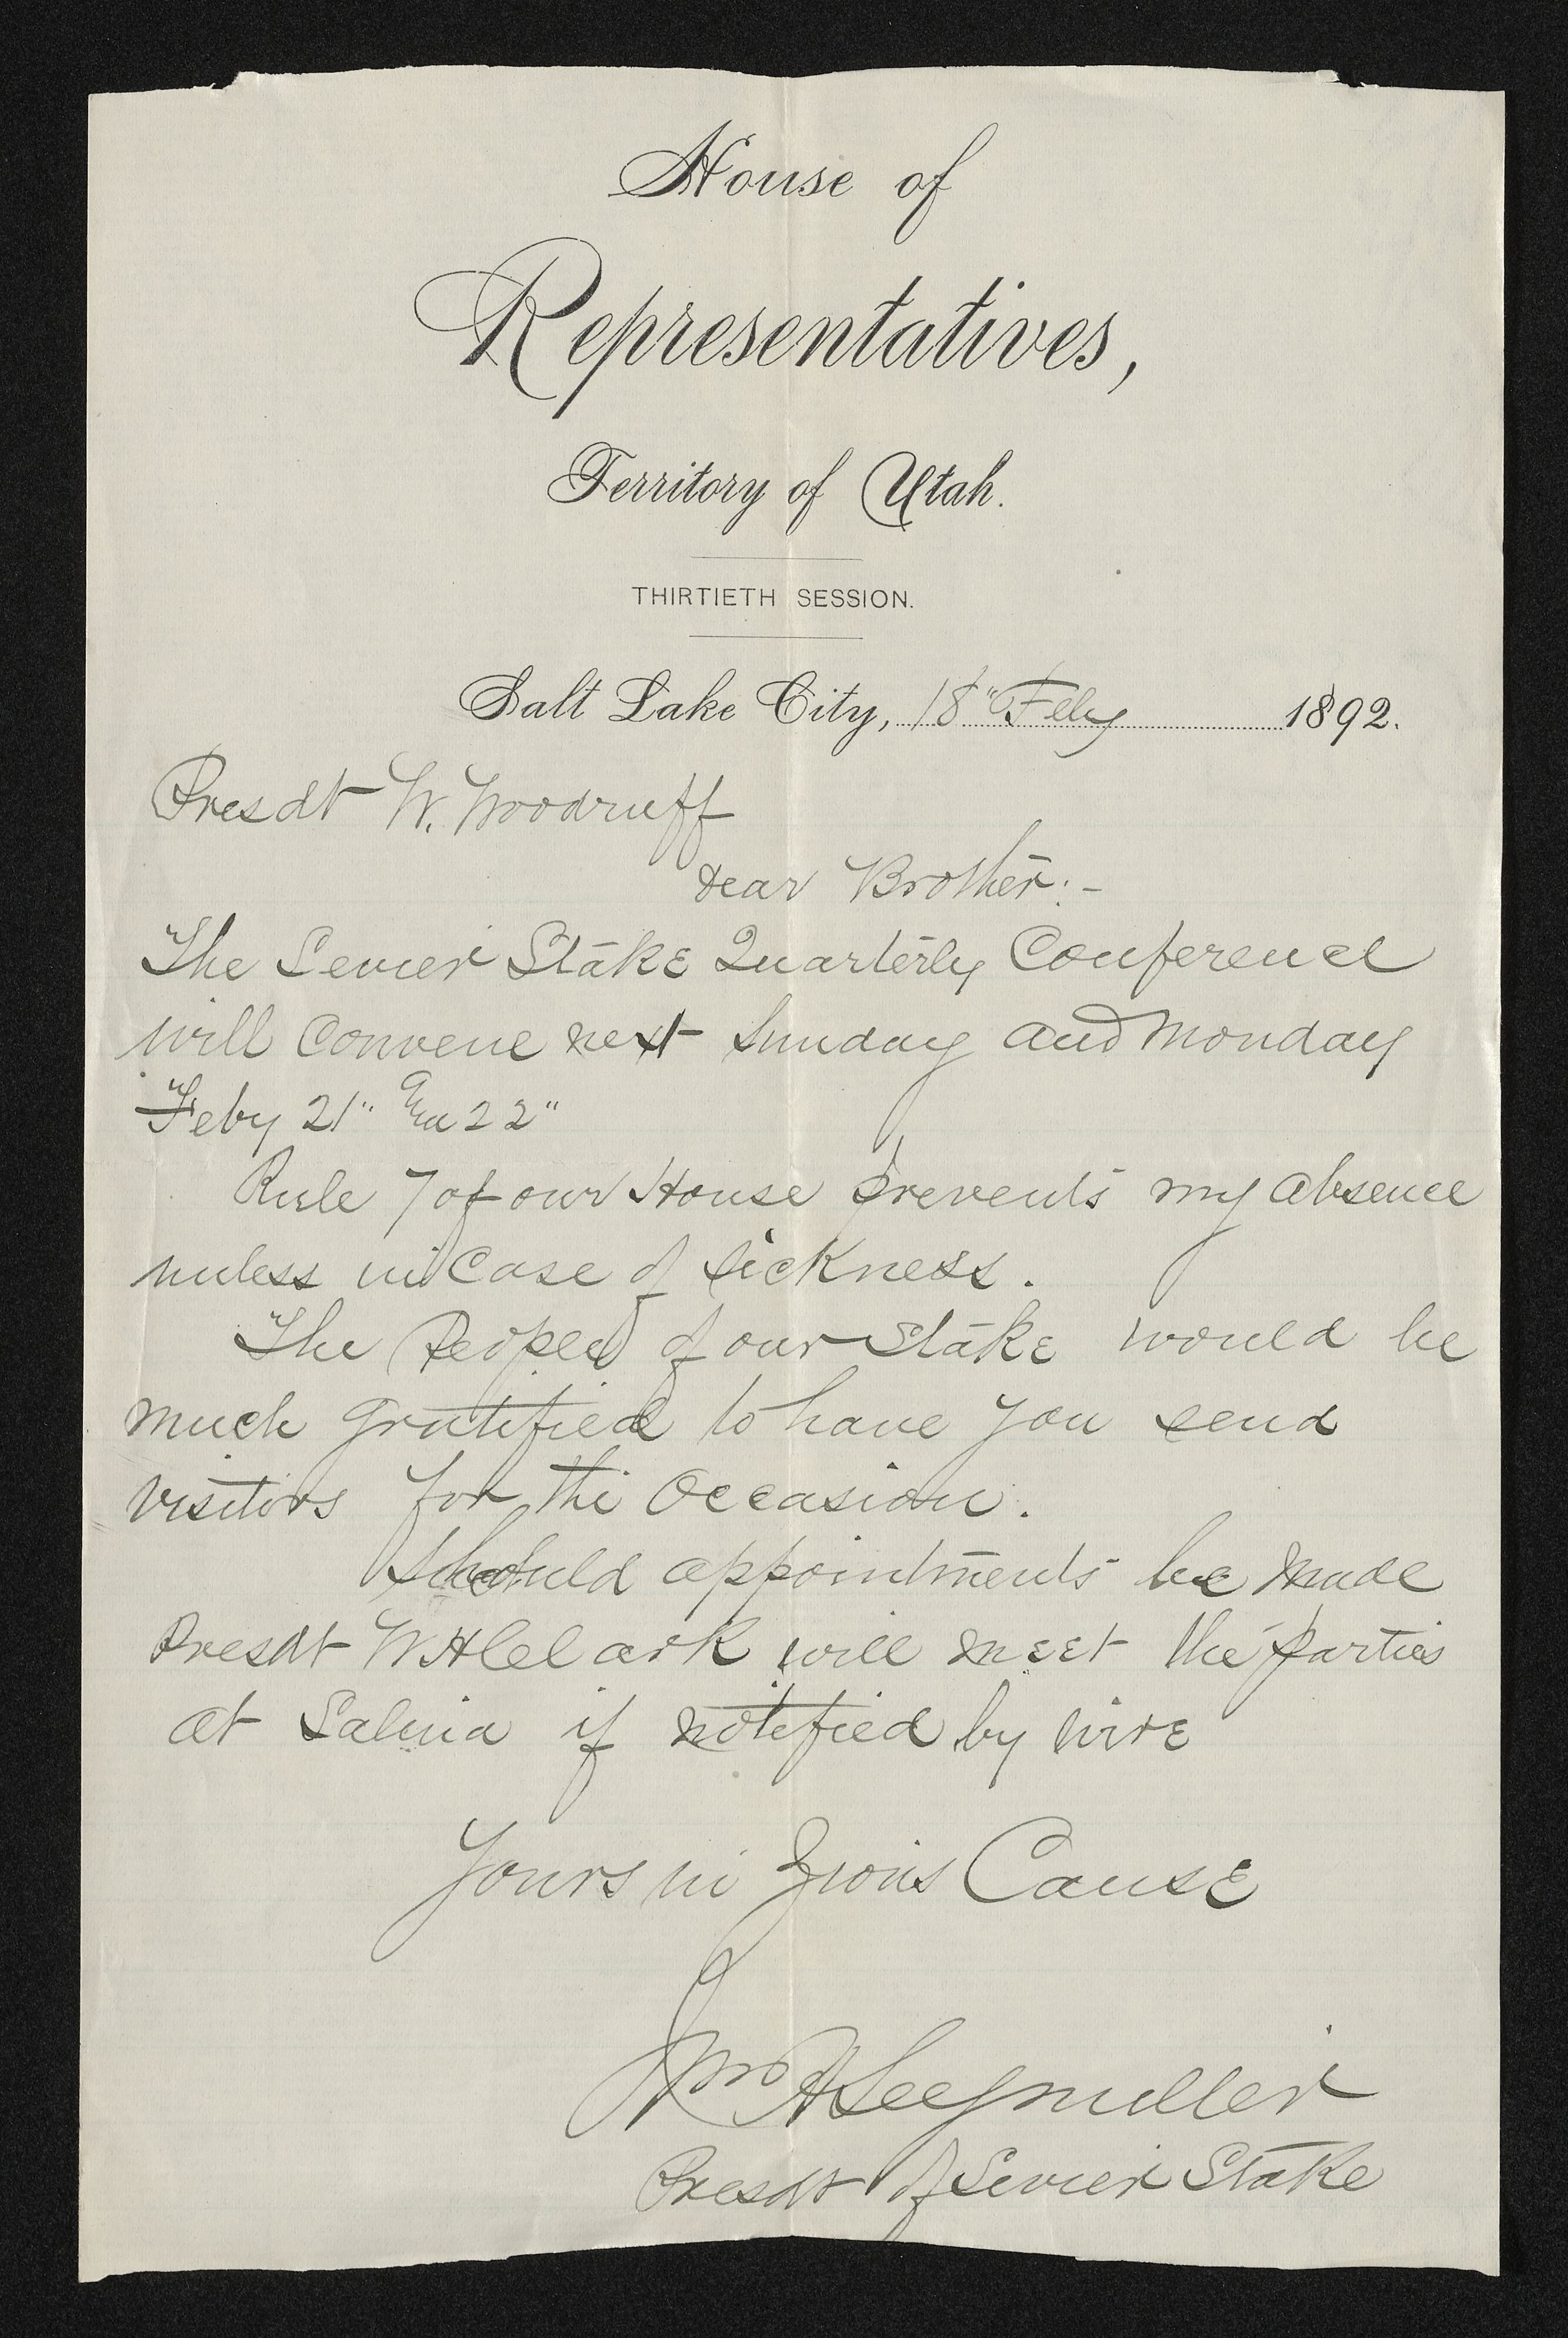 House of
Representatives,
Territory of Utah.
THIRTIETH SESSION.
Salt Lake City, 18" Feby 1892.
Presdt W. Woodruff
Dear Brother:-
The Sevier Stake Quarterly Conference
will Convene next Sunday and Monday
Feby 21" & 22"
Rule 7 of our House prevents my absence
unless in Case of sickness.
The People of our Stake would be
much gratified to have you send
visitors for the Occasion.
Should appointments be made
Presdt W H Clark will meet the parties
at Salina if notified by wire
Yours in Zions Cause
Wm H Seegmiller
Presdt of Sevier Stake